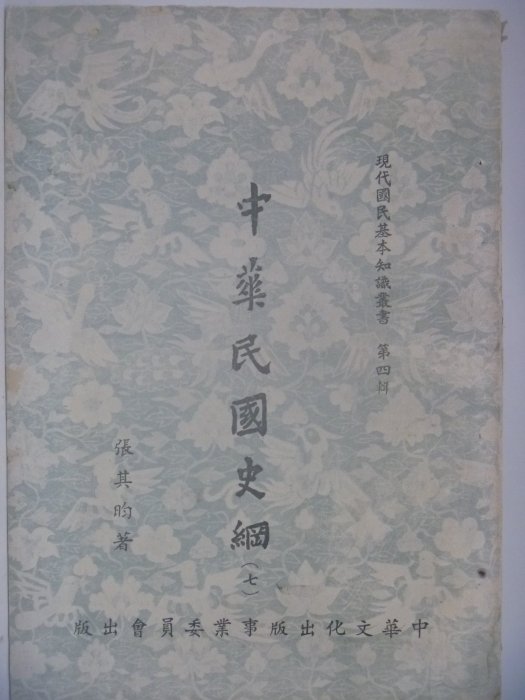 現代國民基本知識叢書 第四輯
中華民國史綱(七)
張其昀著
中華文化出版事業委員會出版